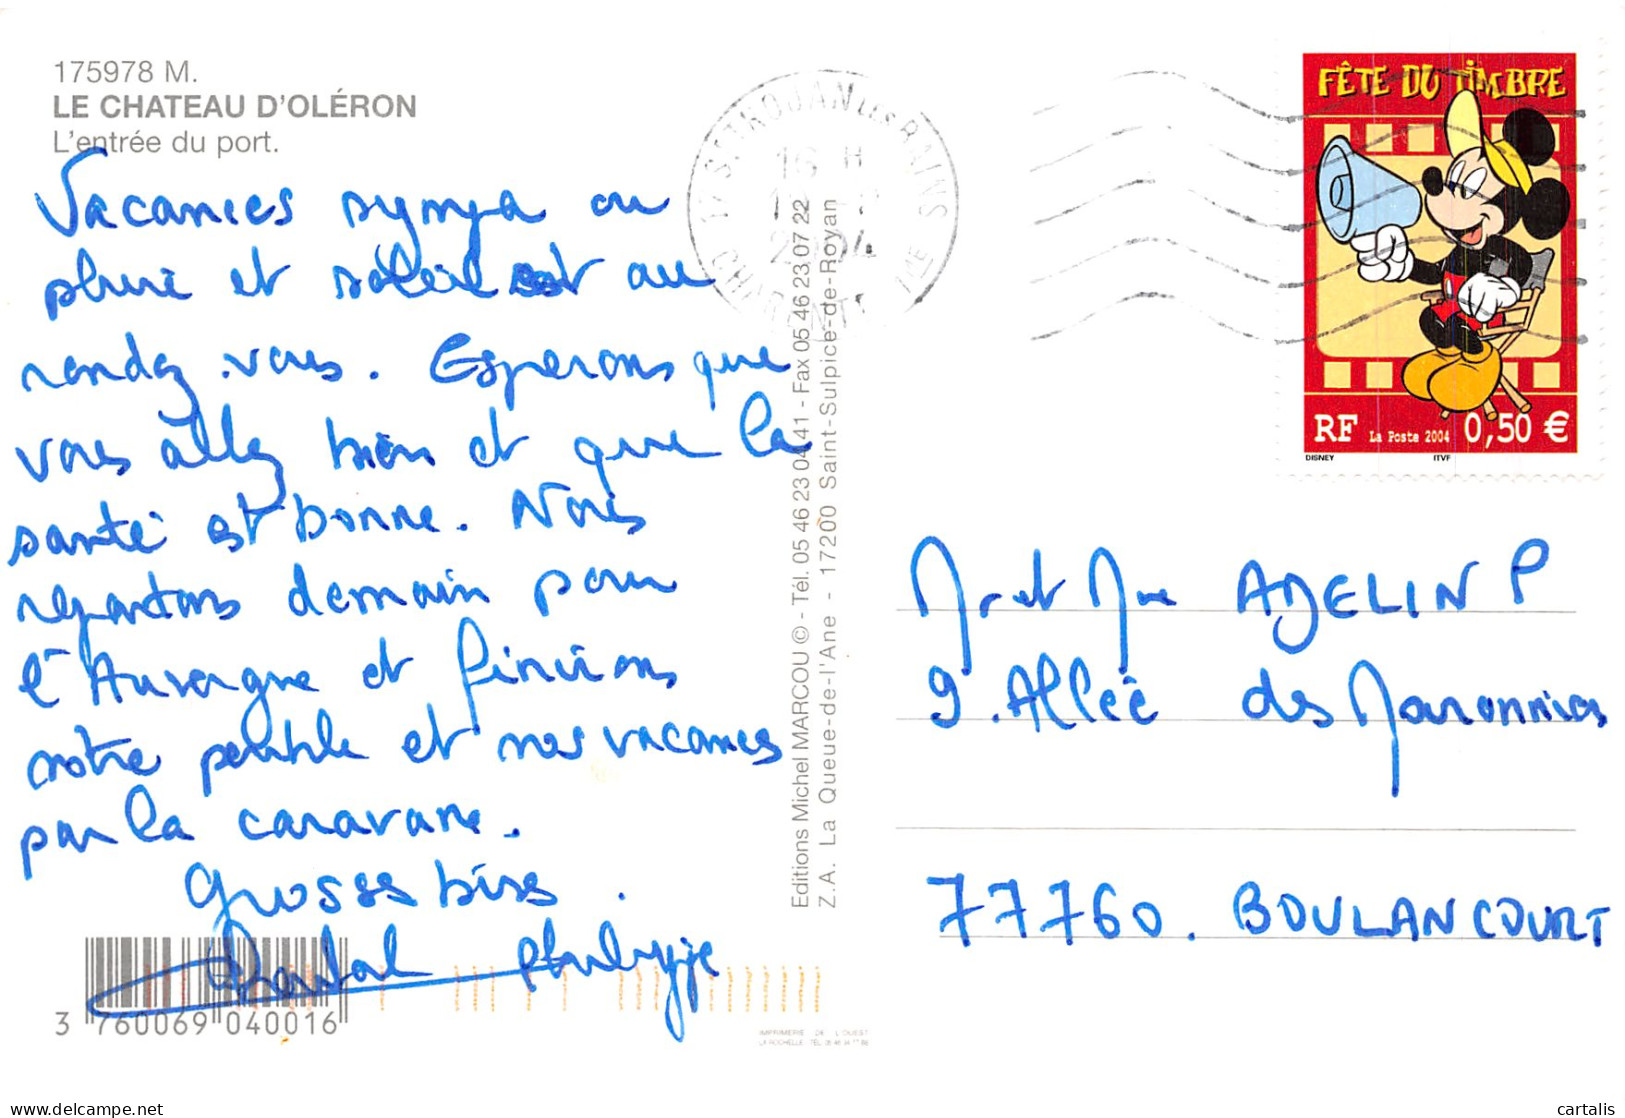 175978 M.
LE CHATEAU D'OLÉRON
L'entrée du port.
Vacances sympa ou
pluie et soleil est au
rendez-vous. Esperons que
vous allez bien et que la
santé est bonne. Nous
repartons demain pour
l'Auvergne et finirons
notre periple et nos vacances
par la caravane.
Grosses bises.
Chantal Philippe
3 760069 040016
IMPRIMERIE DE L'OUEST
Editions Michel MARCOU © - Tél. 05 46 23 04 41 - Fax 05 46 23 07 22
Z.A. La Queue-de-l'Ane - 17200 Saint-Sulpice-de-Royan
17 ST TROJAN LES BAINS
16 H
2004
CHARENTE MME
FÊTE DU TIMBRE
RF La Poste 2004 0,50 €
DISNEY ITVF
Mr et Mme ADELIN P
9. Allée des Maronniers
77760. BOULANCOURT
cartalis